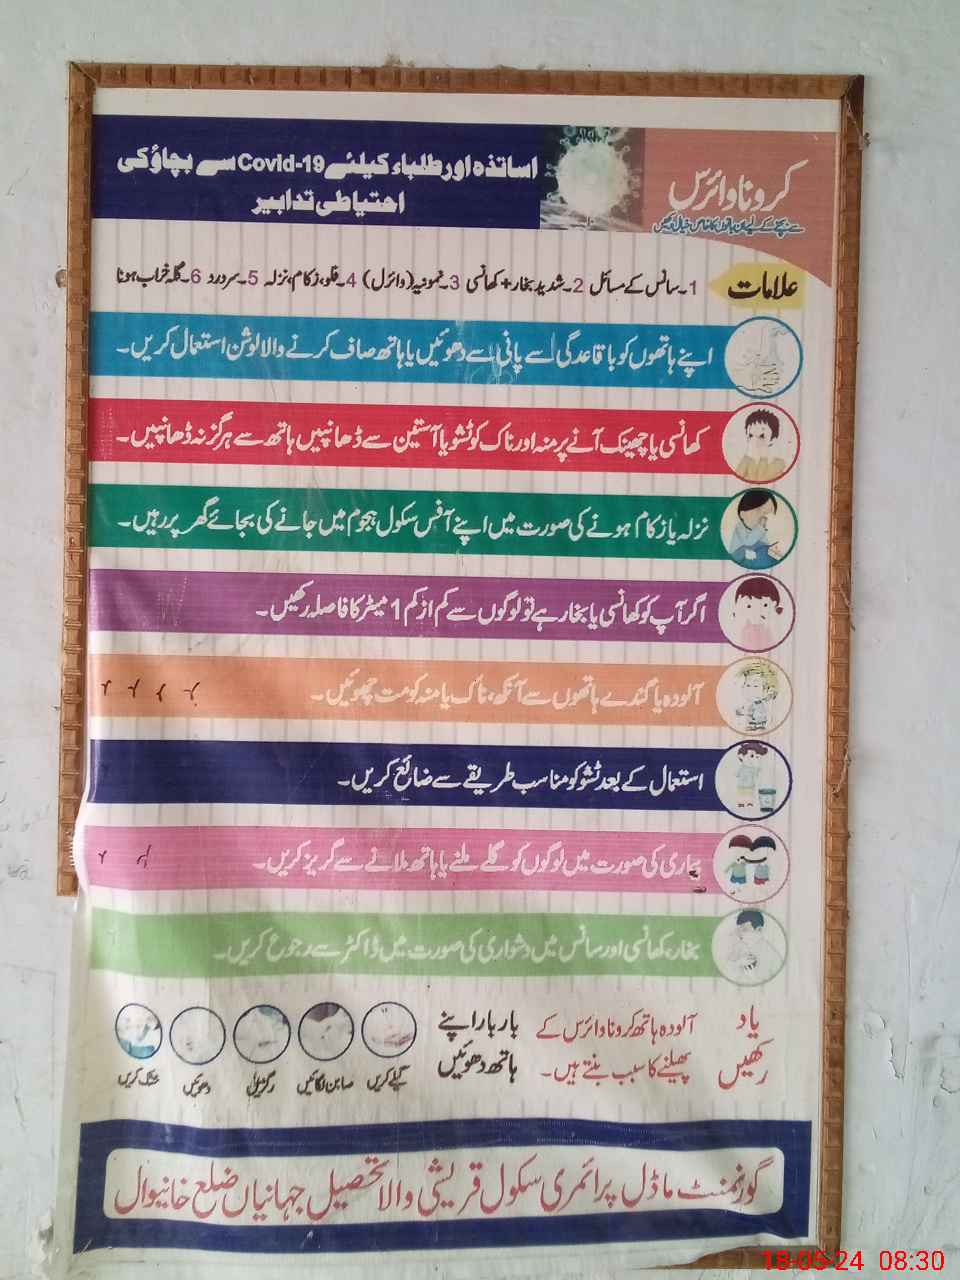 کرونا وائرس
سے بچنے کے لیے ان باتوں کا خاص خیال رکھیں
اساتذہ اور طلباء کیلئے Covid-19 سے بچاؤ کی
احتیاطی تدابیر
علامات
1۔سانس کے مسائل 2۔شدید بخار+کھانسی 3۔نمونیہ(وائرل) 4۔فلو،زکام،نزلہ 5۔سر درد 6۔گلہ خراب ہونا
اپنے ہاتھوں کو باقاعدگی سے پانی سے دھوئیں یا ہاتھ صاف کرنے والا لوشن استعمال کریں۔
کھانسی یا چھینک آنے پر منہ اور ناک کو ٹشو یا آستین سے ڈھانپیں ہاتھ سے ہرگز نہ ڈھانپیں۔
نزلہ یا زکام ہونے کی صورت میں اپنے آفس سکول ہجوم میں جانے کی بجائے گھر پر رہیں۔
اگر آپ کو کھانسی یا بخار ہے تو لوگوں سے کم از کم 1 میٹر کا فاصلہ رکھیں۔
آلودہ یا گندے ہاتھوں سے آنکھ، ناک یا منہ کو مت چھوئیں۔
استعمال کے بعد ٹشو کو مناسب طریقے سے ضائع کریں۔
بیماری کی صورت میں لوگوں کو گلے ملنے یا ہاتھ ملانے سے گریز کریں۔
بخار، کھانسی اور سانس میں دشواری کی صورت میں ڈاکٹر سے رجوع کریں۔
یاد
رکھیں
آلودہ ہاتھ کرونا وائرس کے
پھیلنے کا سبب بنتے ہیں۔
بار بار اپنے
ہاتھ دھوئیں
گیلے کریں
صابن لگائیں
رگڑیں
دھوئیں
خشک کریں
گورنمنٹ ماڈل پرائمری سکول قریشی والا تحصیل جہانیاں ضلع خانیوال
18-05-24 08:30